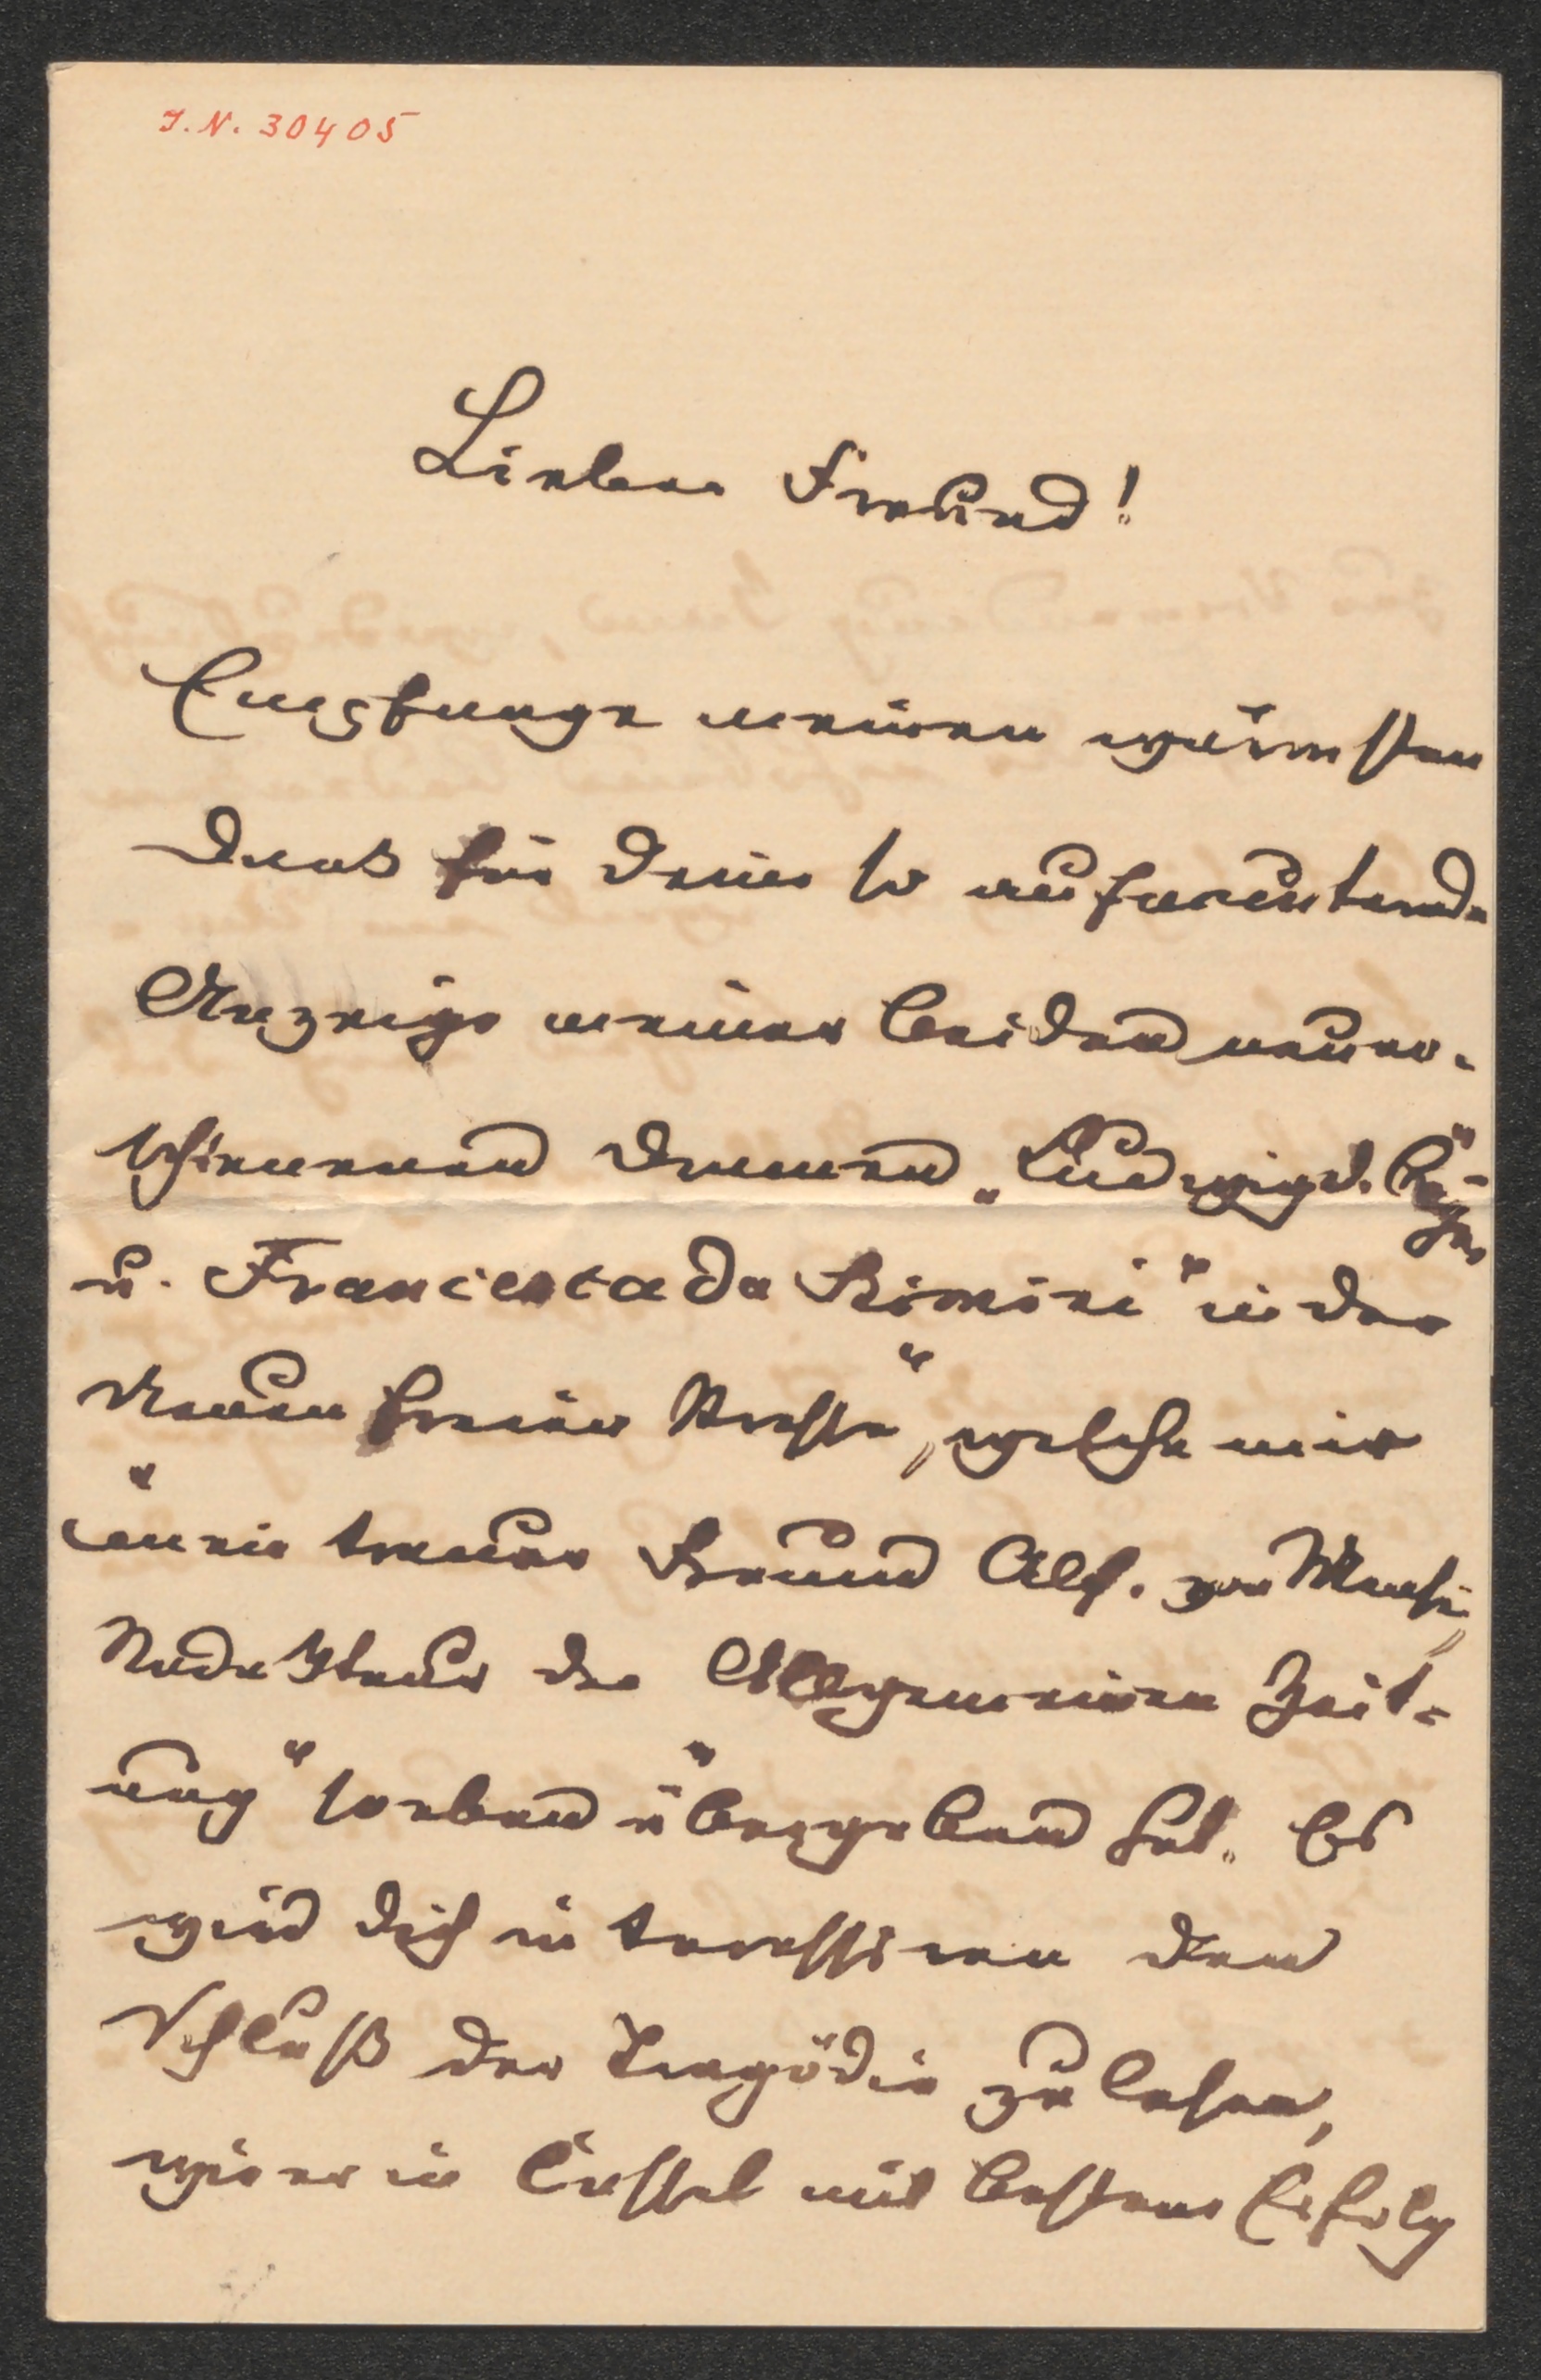 I.N. 30405
Lieber Freund!
Empfange meinen wärmsten
Dank für Deine so aufmunternde
Anzeige meiner beiden neuer-
schienenen Dramen „Ludwig d. Bayer"
u. Francesca da Rimini" in der
Neuen freien Presse", welche mir
mein treuer Freund Alf. von Mensi,
Redakteur der Allgemeinen Zeit-
ung" soeben übergeben hat. Es
wird Dich interessiren den
Schluß der Tragödie zu lesen,
wie er in Cassel mit bestem Erfolg